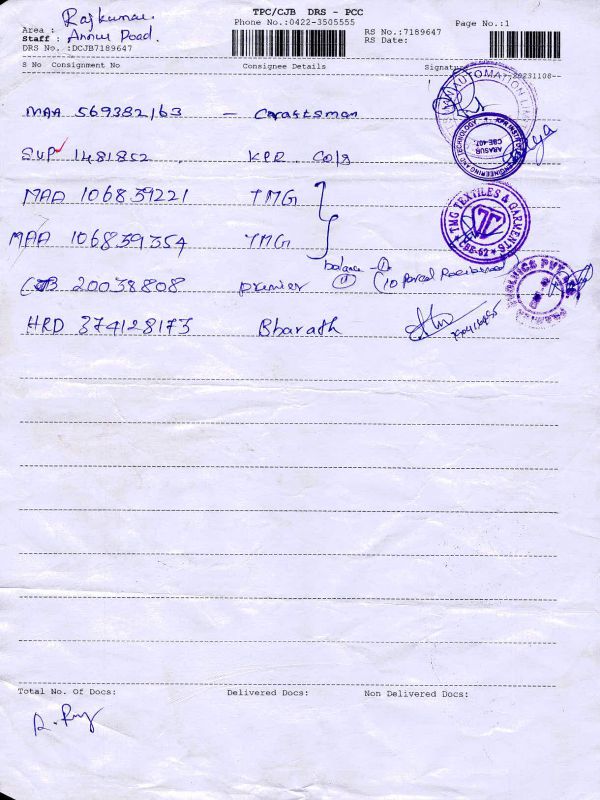 TPC/CJB DRS - PCC
Rajkumar.
Phone No.:0422-3505555
Page No.:1
Area :
Staff : Annur Road.
RS No.:7189647
RS Date:
DRS No. :DCJB7189647
S No Consignment No Consignee Details Signature
20231108--
MAA 569382163 - Craftsman
SUP 1481852 KPR Col8
MAA 106839221 TMG
MAA 106839354 TMG
TMG TEXTILES & GARMENTS
CBE-62
balance
CJB 20038808 premier (10 Parcel Received)
HRD 374128173 Bharath
Total No. Of Docs: Delivered Docs: Non Delivered Docs: